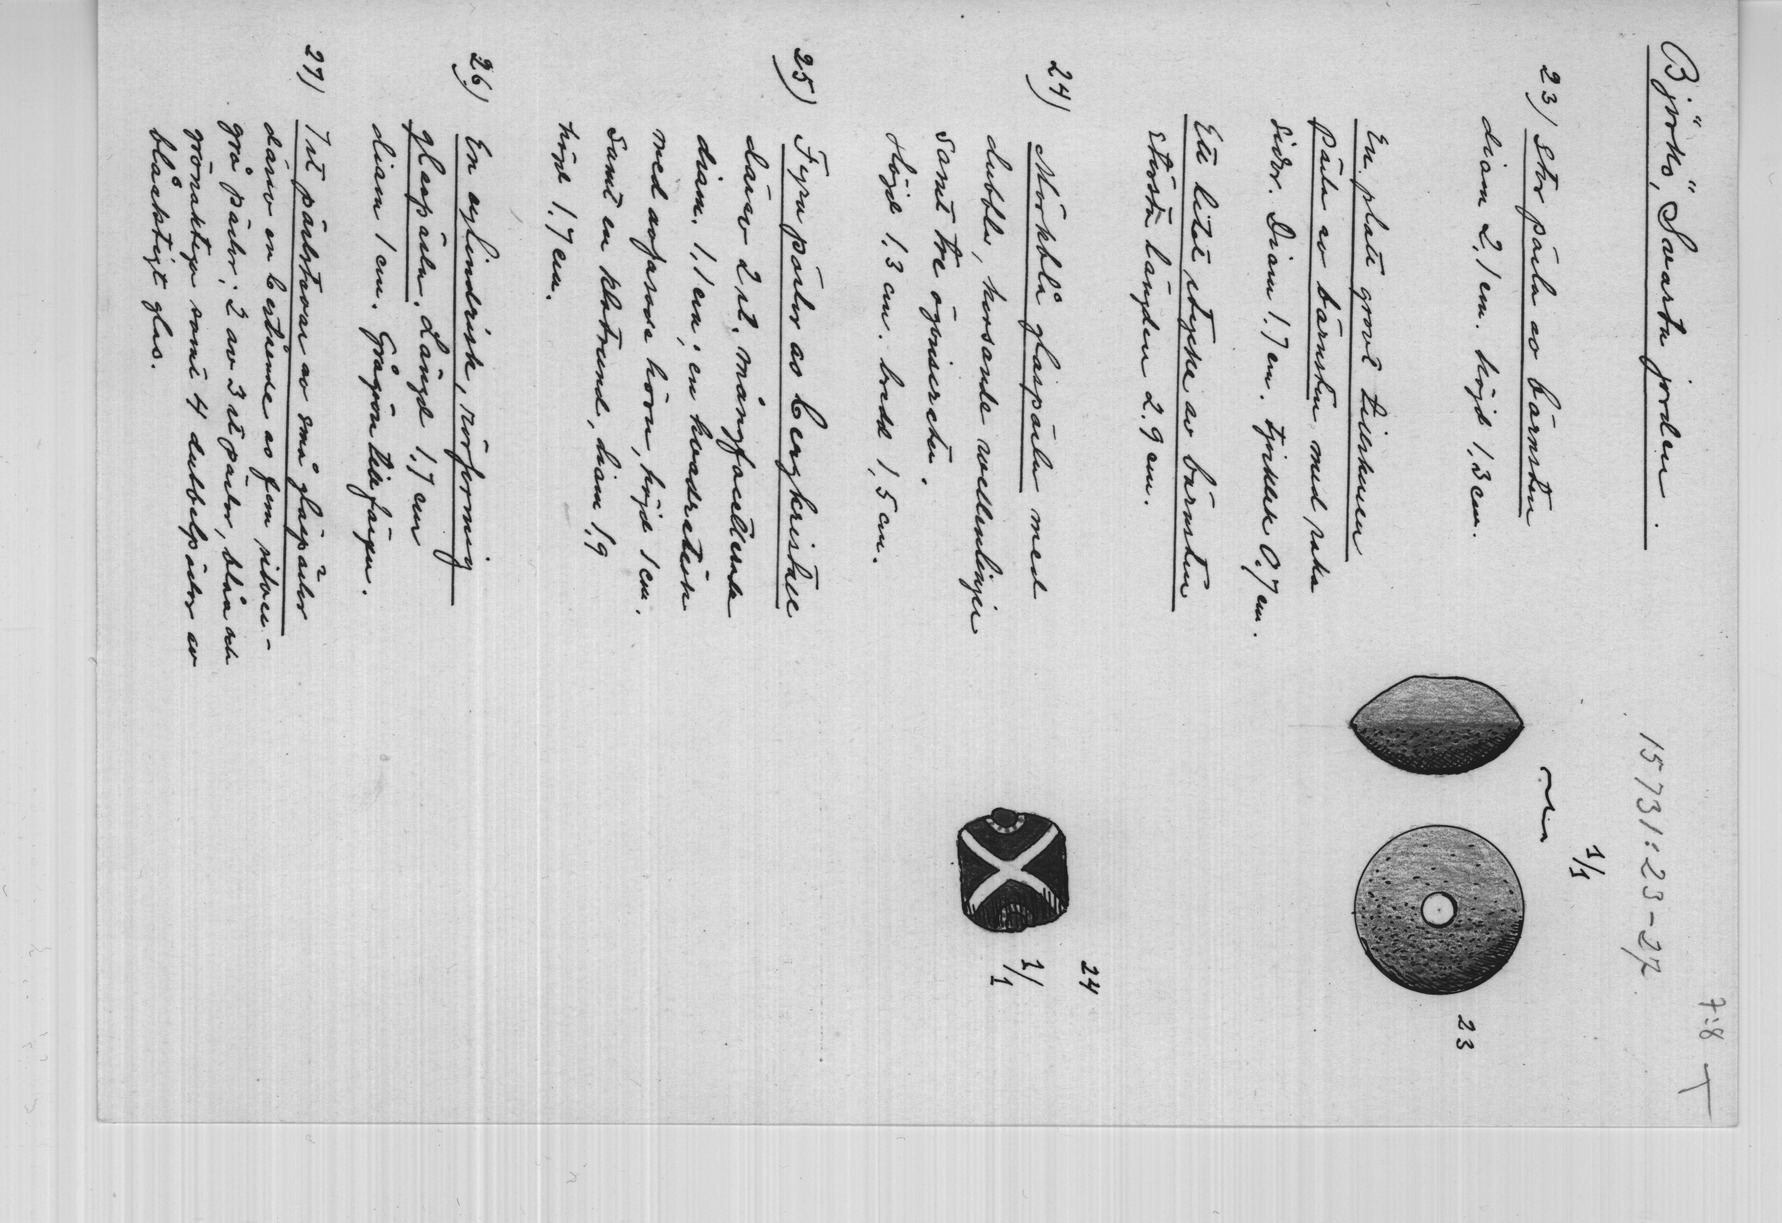 7:8
Björkö, "Svarta jorden".
15731:23-27.
23) Stor pärla av bärnsten
diam 2,1 cm. höjd 1,3 cm.
1/1
23
En platt grovt tillskuren
pärla av bärnsten med raka
sidor. Diam 1.7 cm. tjocklek 0,7 cm.
Ett litet stycke av bärnsten
största längden 2.9 cm.
24) Mörkblå glaspärla med
dubbla, korsande
samt tre
Höjd 1.3 cm. bredd 1,5 cm.
24
1/1
25) Fyra pärlor av bergkristall
därav 2 st. mångfacetterade
diam. 1,1 cm; en kvadratisk
med avfasade hörn, höjd 1 cm.
samt en klotrund, diam 1,9
höjd 1.7 cm.
26) En cylindrisk, rörformig
glaspärla. Längd 1.7 cm
diam 1 cm. Grågrön till färgen.
27) 7 st pärlstavar av små glaspärlor
därav en bestående av fem silver-
grå pärlor; 2 av 3 st pärlor, blåa och
grönaktiga samt 4 dubbelpärlor av
blåaktigt glas.